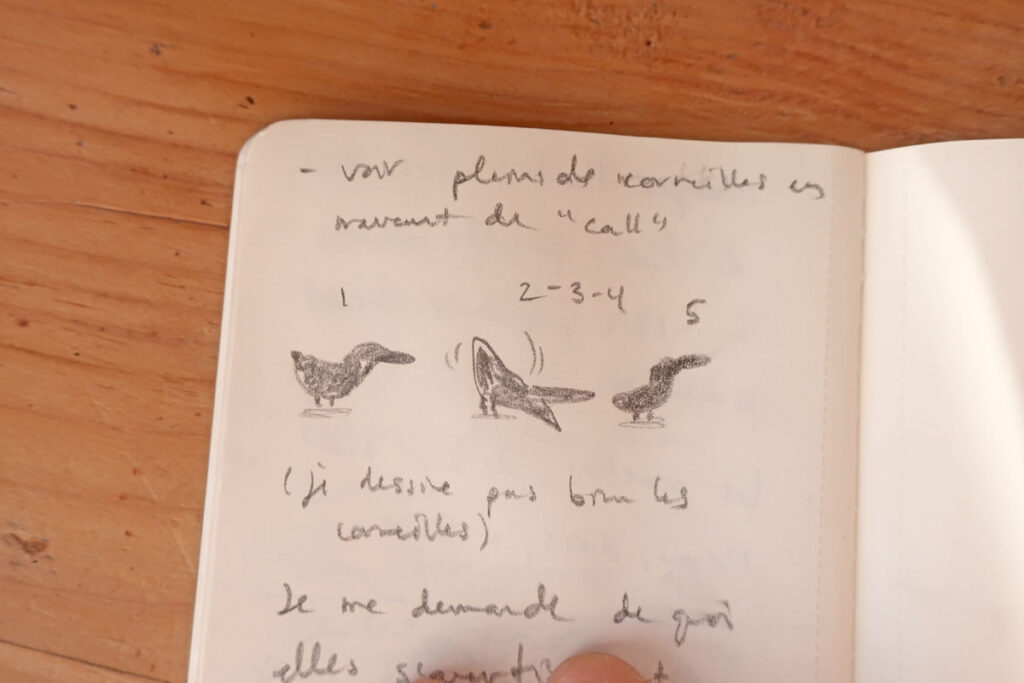 - voir pleins de corneilles en
de "call"
1
2-3-4
5
(je dessine pas bien les
corneilles)
Je me demande de quoi
elles